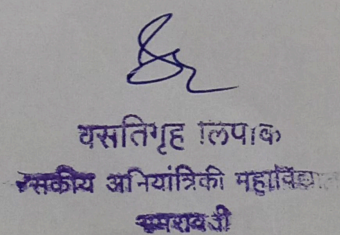 वसतिगृह लिपीक
शासकीय अभियांत्रिकी महाविद्यालय
अमरावती